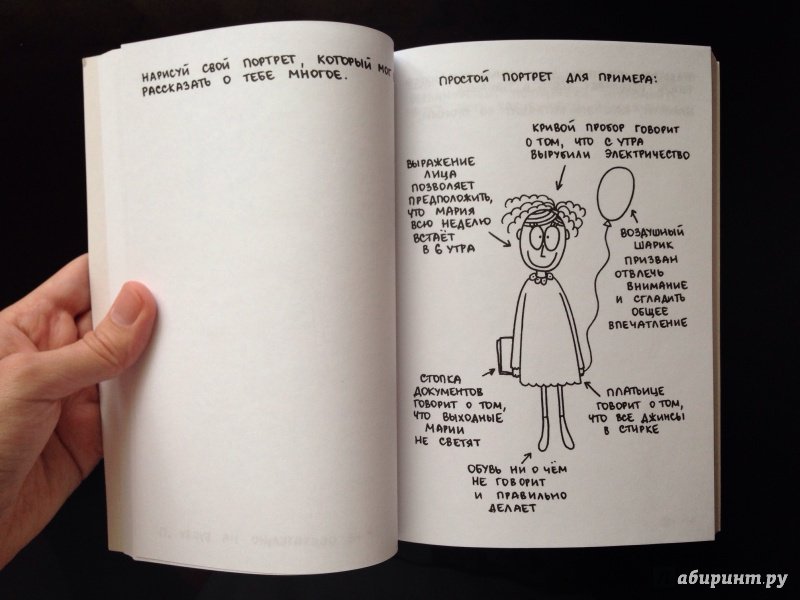 НАРИСУЙ СВОЙ ПОРТРЕТ, КОТОРЫЙ
РАССКАЗАТЬ О ТЕБЕ МНОГОЕ.
ПРОСТОЙ ПОРТРЕТ ДЛЯ ПРИМЕРА:
КРИВОЙ ПРОБОР ГОВОРИТ
О ТОМ, ЧТО С УТРА
ВЫРУБИЛИ ЭЛЕКТРИЧЕСТВО
ВЫРАЖЕНИЕ
ЛИЦА
ПОЗВОЛЯЕТ
ПРЕДПОЛОЖИТЬ,
ЧТО МАРИЯ
ВСЮ НЕДЕЛЮ
ВСТАЁТ
В 6 УТРА
ВОЗДУШНЫЙ
ШАРИК
ПРИЗВАН
ОТВЛЕЧЬ
ВНИМАНИЕ
И СГЛАДИТЬ
ОБЩЕЕ
ВПЕЧАТЛЕНИЕ
СТОПКА
ДОКУМЕНТОВ
ГОВОРИТ О ТОМ,
ЧТО ВЫХОДНЫЕ
МАРИИ
НЕ СВЕТЯТ
ПЛАТЬИЦЕ
ГОВОРИТ О ТОМ,
ЧТО ВСЕ ДЖИНСЫ
В СТИРКЕ
ОБУВЬ НИ О ЧЁМ
НЕ ГОВОРИТ
И ПРАВИЛЬНО
ДЕЛАЕТ
Лабиринт.ру